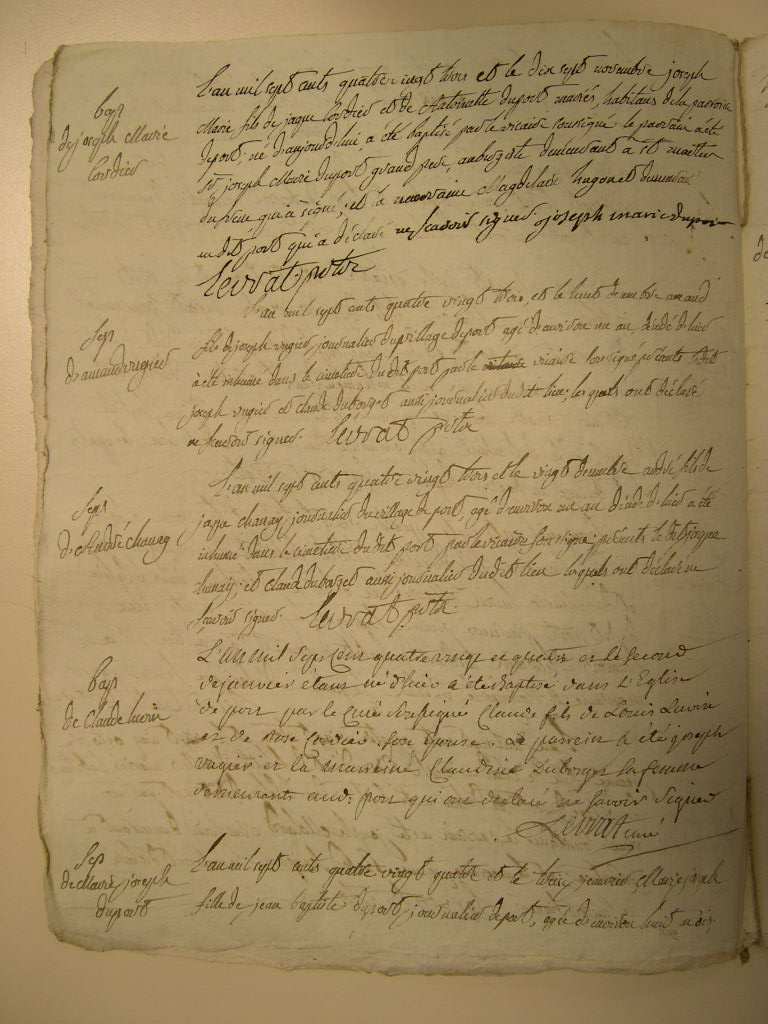 bap
de joseph Marie
Cordier
L'an mil sept cents quatre vingt trois et le dix sept novembre joseph
Marie fils de jaque Cordier et de Antoinette duport mariés, habitans de la parroisse
de port, né d'aujourd'hui a été baptisé par le vicaire soussigné le parrain a été
sr joseph Marie duport grand pere, aubergiste demeurant à st
qui a signé; et la marraine Magdelaine hugonet demeurant
audit port qui a déclaré ne scavoir signer joseph marie dupor
levrat ptre
sep
d'amand vugier
L'an mil sept cents quatre vingt trois, et le huit décembre amand
fils de joseph vugier journalier du village de port, agé d'environ un an décédé d'hier
a été inhumé dans le cimetiere dudit port par le vicaire soussigné présents ledit
joseph vugier et claude duborget aussi journalier dudit lieu; lesquels ont déclaré
ne scavoir signer. levrat ptre
sep
d'André chanay
L'an mil sept cents quatre vingt trois et le vingt décembre andré fils de
jaque chanay journalier du village de port, agé d'environ un an décédé d'hier a été
inhumé dans le cimetiere dudit port, par le vicaire soussigné: présents ledit jaque
chanay; et claude duborget aussi journalier dudit lieu lesquels ont déclaré ne
scavoir signer. levrat ptre
bap
de Claude
L'an mil sept cent quatre vingt et quatre et le second
de janvier étant né d'hier a été Baptisé dans L'Eglise
de port par le curé soussigné Claude fils de Louis
et de Rose Cordier son épouse. Le parrein a été joseph
vugier et la marreine Claudine duborget sa femme
demeurants aud. port qui ont déclaré ne savoir signer
Levrat curé
sep
de Marie joseph
duport
L'an mil sept cents quatre vingt quatre et le trois janvier Marie joseph
fille de jean baptiste duport journalier de port, agée d'environ huit